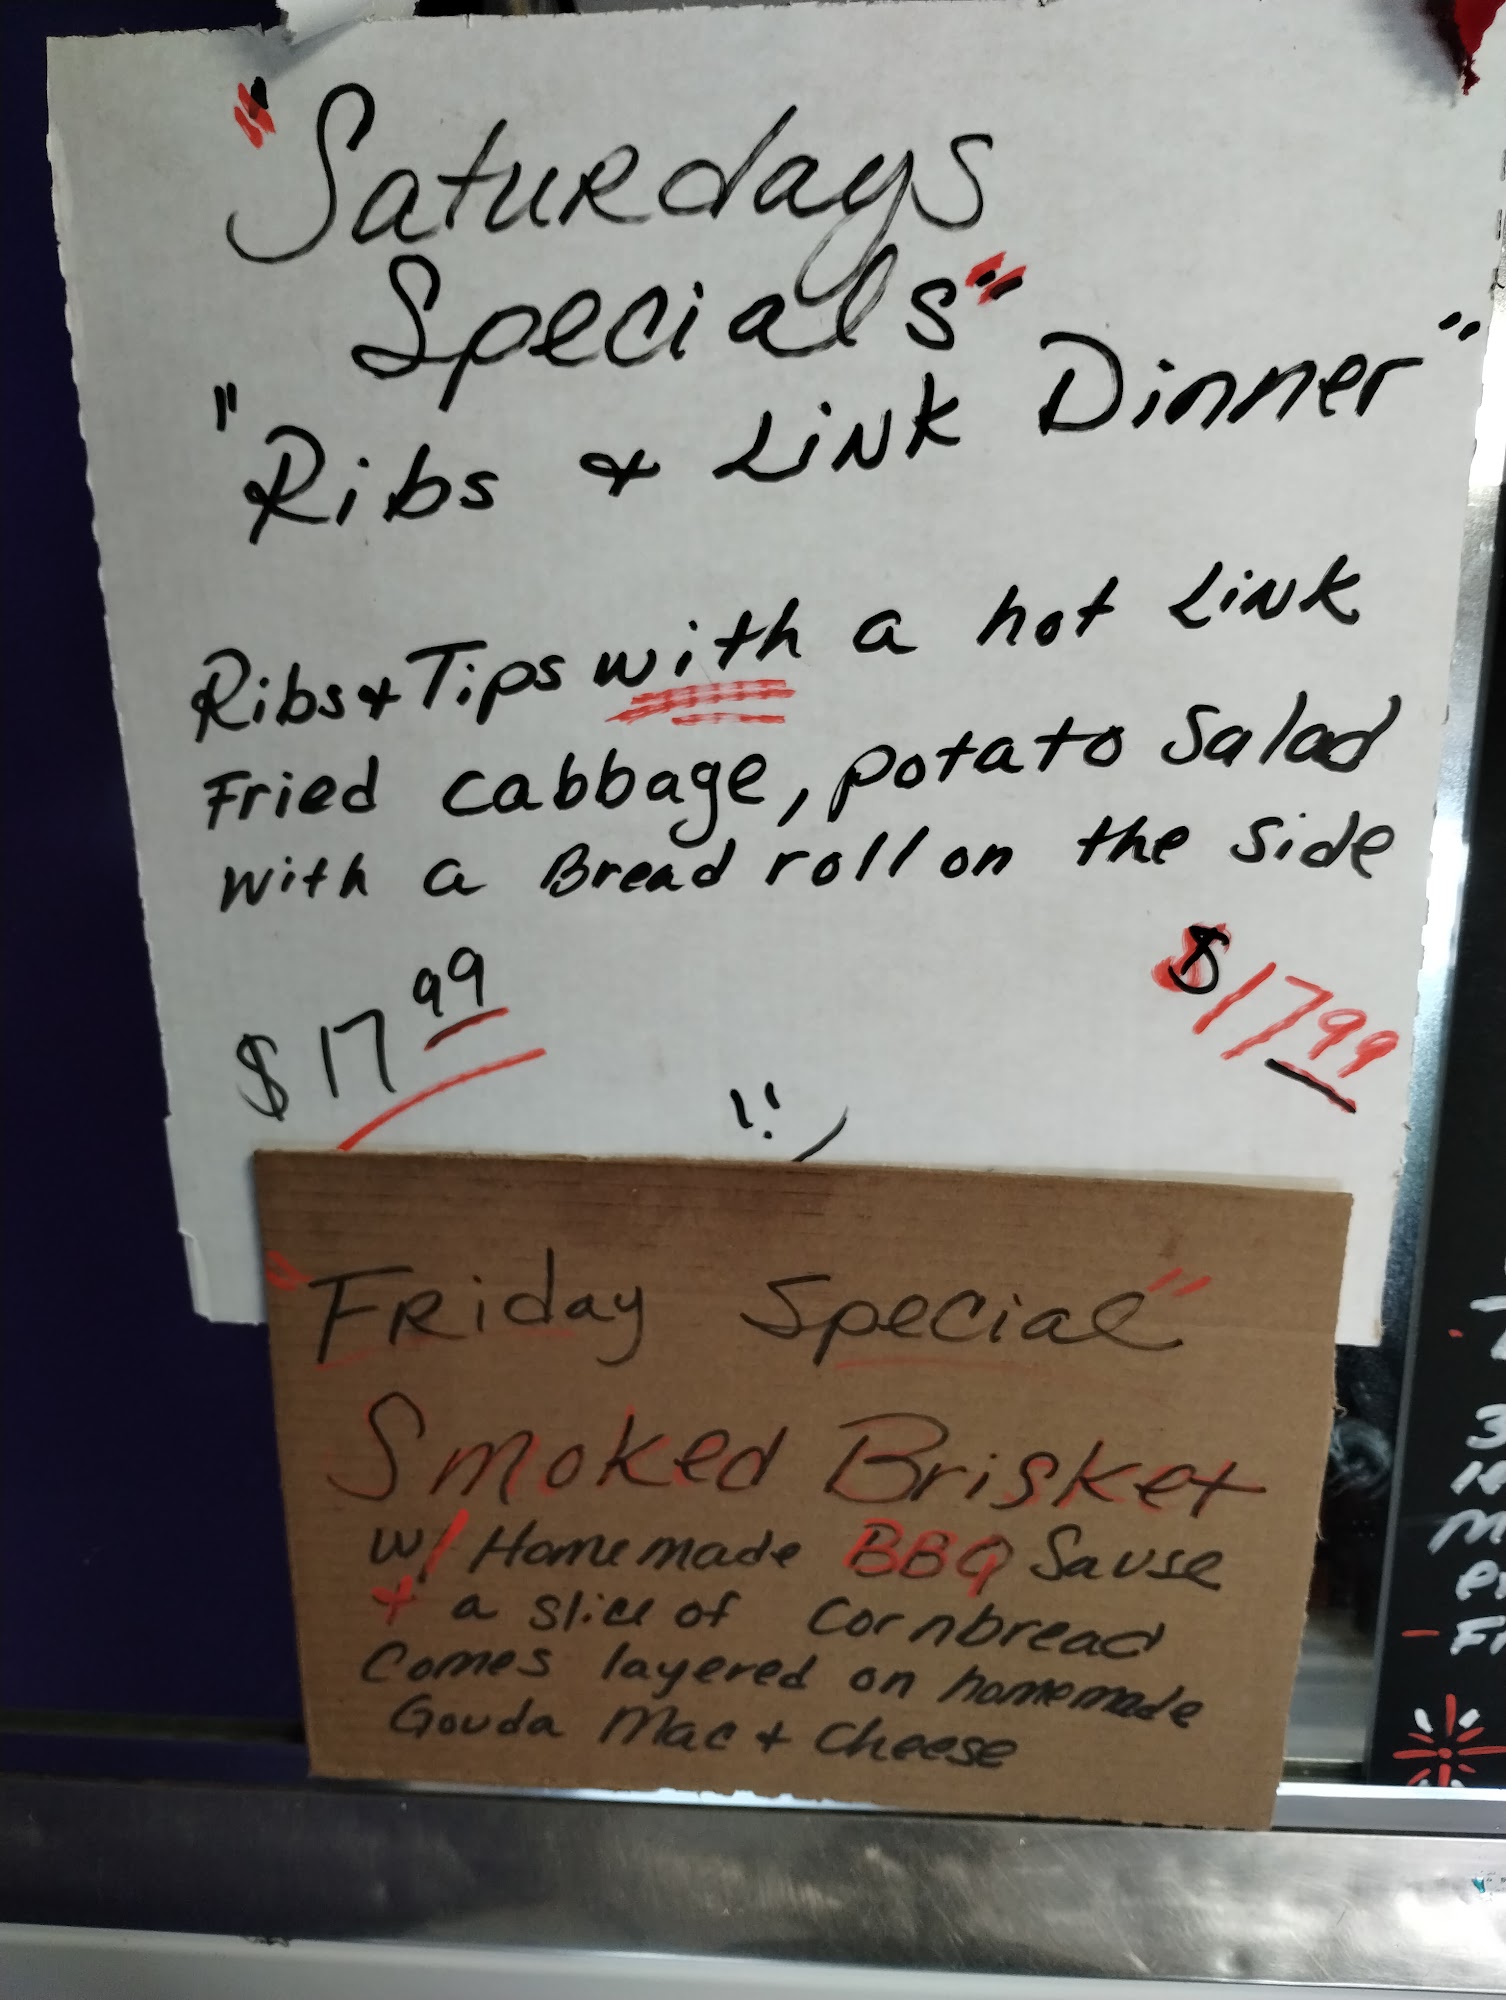 "Saturdays
Specials"
"Ribs & Link Dinner"
Ribs & Tips with a hot Link
Fried cabbage, potato Salad
with a Bread roll on the side
$17 99
$17 99
"Friday Special"
Smoked Brisket
w/ Homemade BBQ Sause
+ a slice of Cornbread
Comes layered on homemade
Gouda Mac + Cheese